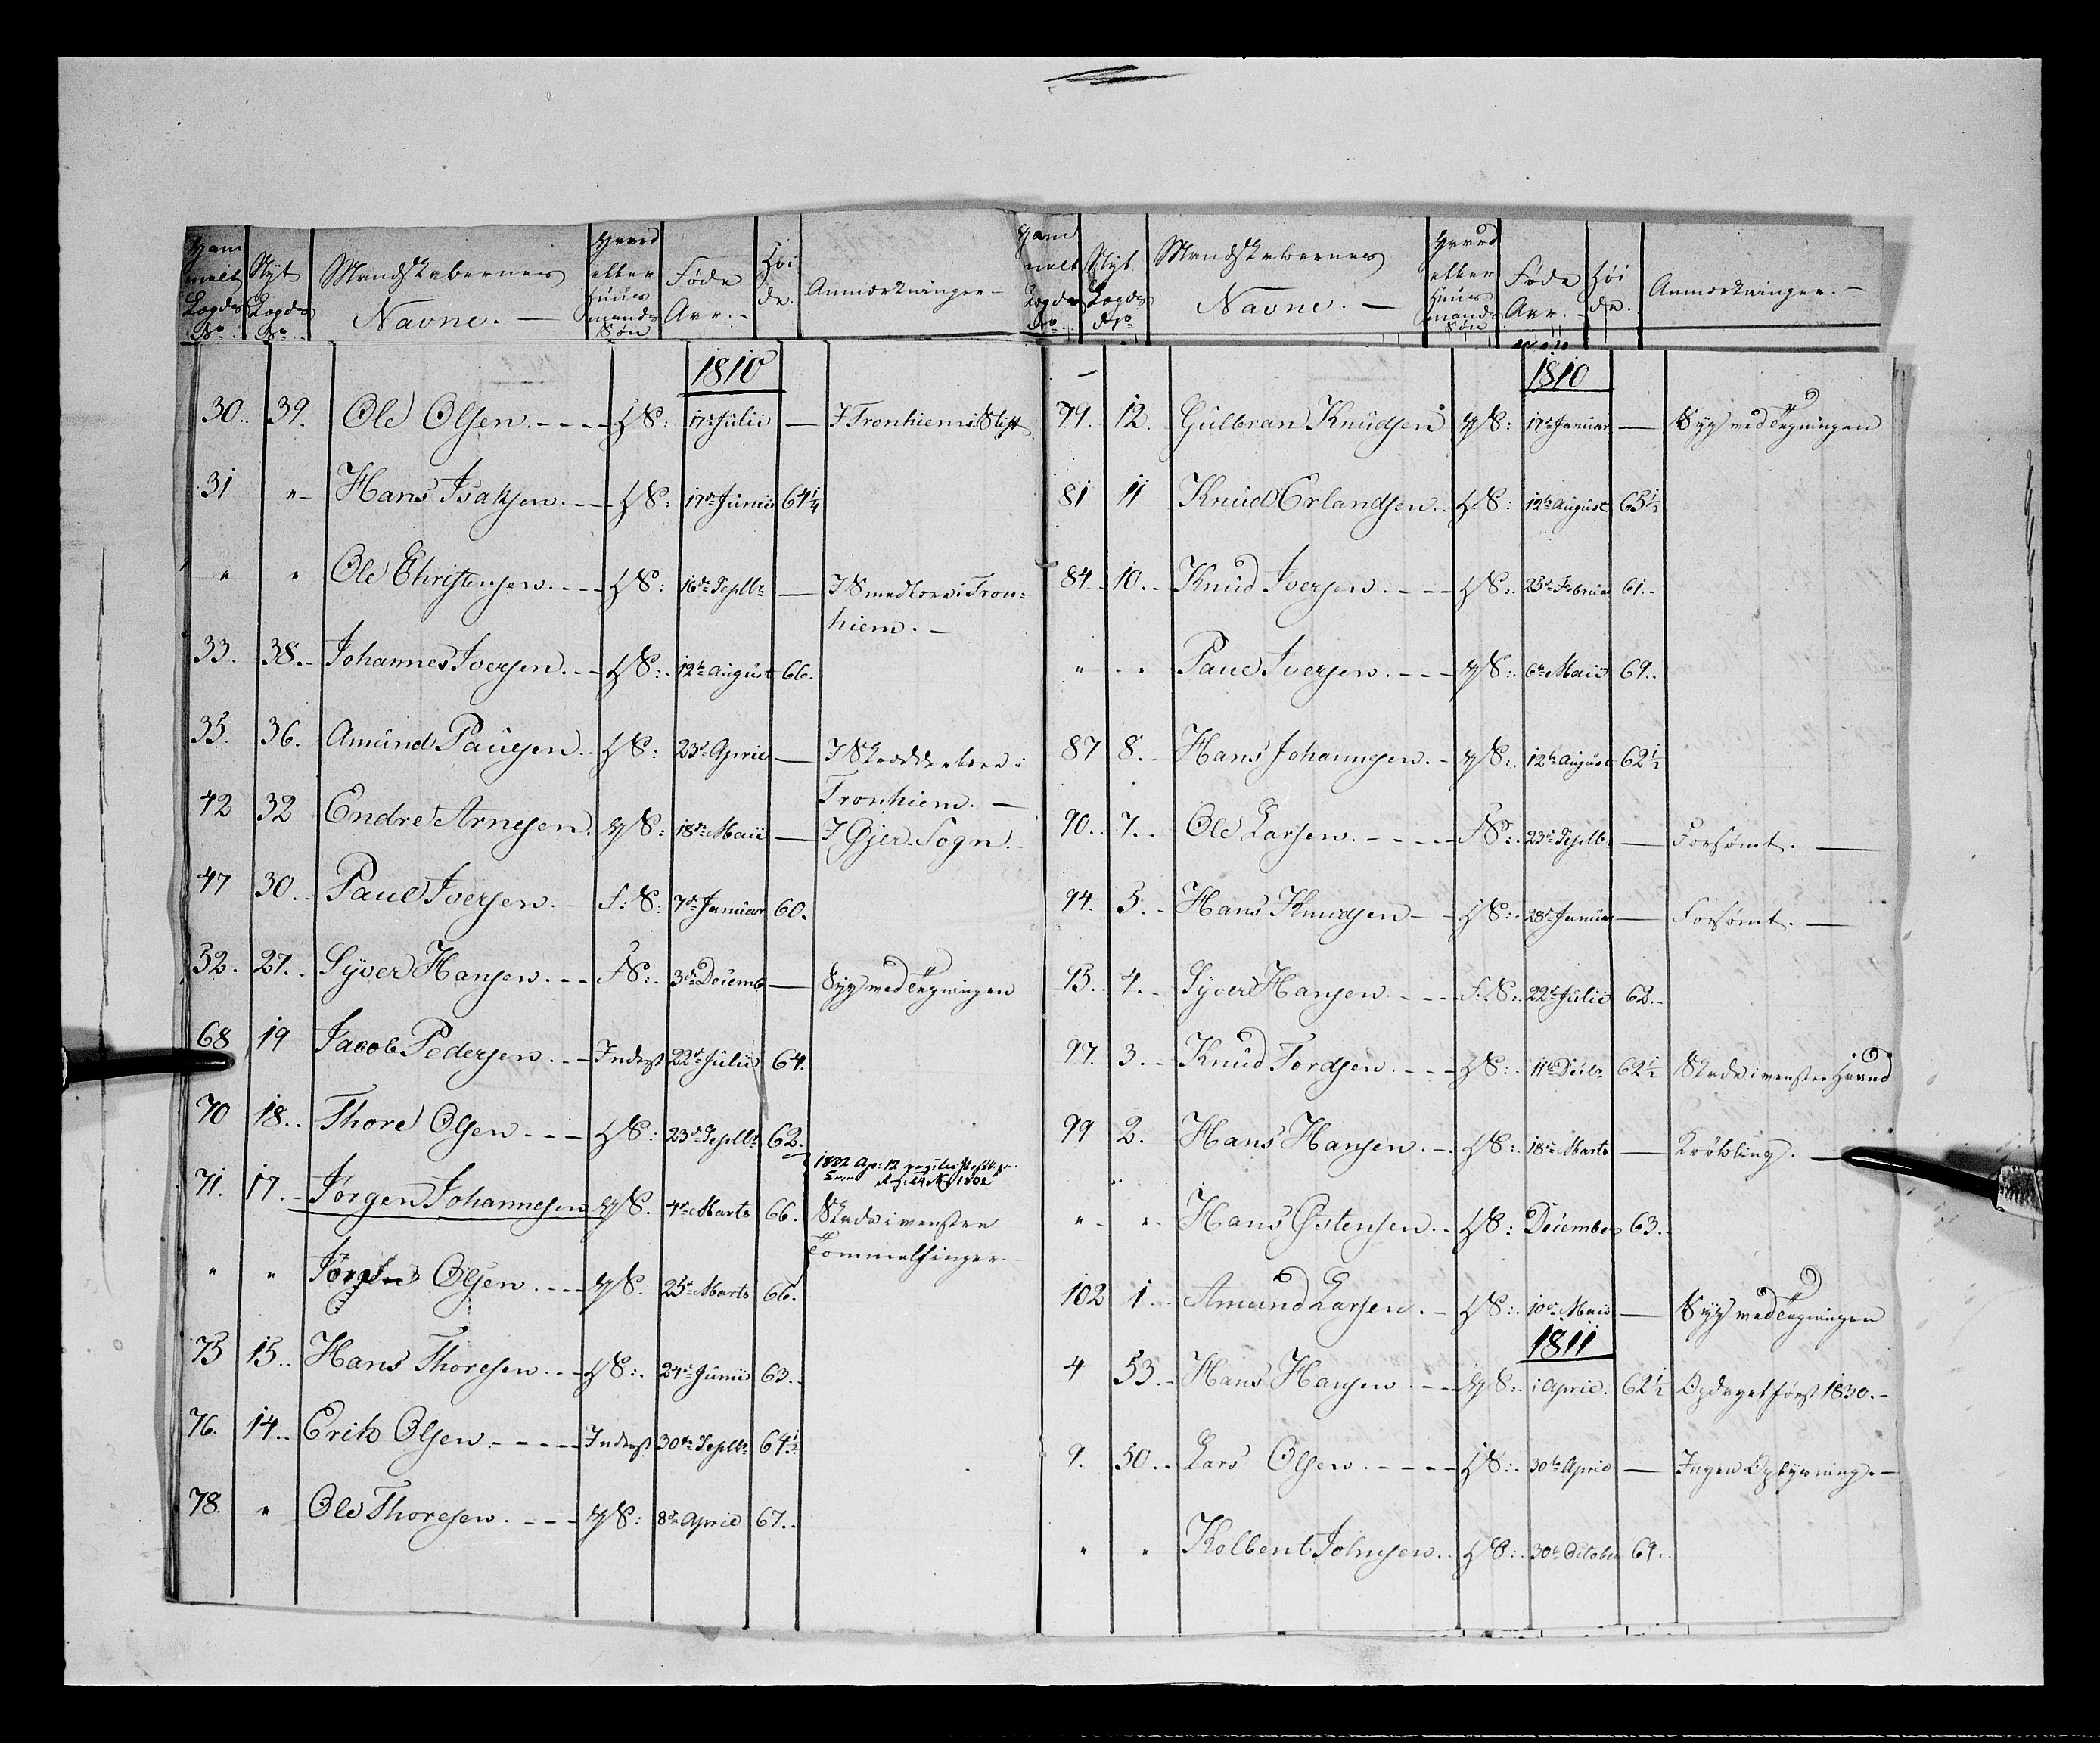 Gam
melt
Lægds
No.
Nyt
Lægds
No.
Mandskabernes
Navne. —
Gaard
eller
Huus
mands
Søn
Føde
Aar. -
Høi
de.
Anmærkninger —
1810
30. 39. Ole Olsen. - - - - HS: 17de Julii — I Tronhiems Stift
31 " - Hans Isaksen. - - HS: 17de Junii 64 1/4
" " Ole Christensen. - - - HS: 16de Septbr — I Smedlære i Tron:
hiem. —
33. 38. - Johannes Iversen. - - HS: 12te August 66.
35. 36. Amund Paulsen. - HS: 23de April — I Skrædderlære i
Tronhiem. —
42 32 Endre Arnesen. GS: 18de Maii — I Øjer Sogn. -
47 30. - Paul Iversen. - F:S: 7de Januar 60.
52. 27. - Syver Hansen. - - - FS: 3de Decemb — Syg ved Tegningen
68 19 Jacob Pedersen. - - Inderst 22de Julii 64.
70 18. - Thore Olsen. - - - HS: 23de Septbr 62.
71. 17. - Jørgen Johannesen GS. 4de Marts 66. Skade i venstre
Tommelfinger. -
" " Jørgen Olsen. - - - - GS. 25de Marts 66.
75 15. - Hans Thoresen. - - HS: 24de Junii 63. -
76. 14. - Erik Olsen. - - - - Inderst 30te Septbr 64 1/2
78. " Ole Thoresen. - - - GS: 8de April 67. -
Gam
melt
Lægds
No.
Nyt
Lægds
No.
Mandskabernes
Navne. —
Gaard
eller
Huus
mands
Søn
Føde
Aar. -
Høi
de.
Anmærkninger. —
1810
79. 12. Gulbran Knudsen GS: 17de Januar — Syg ved Tegningen
81 11 Knud Erlandsen. - HS: 12te August 65 1/2
84. - 10. - Knud Iversen. - - - HS: 23de Februar 61. -
" - " Paul Iversen. - - - GS: 6te Maii 69. -
87 8. - Hans Johannsen. - GS: 12te August 62 1/2
90. - 7. - Ole Larsen. - - - - FS: 23de Septbr — Forsømt. —
94. 5. - Hans Knudsen - - HS: 28de Januar — Forsømt. —
95. - 4. - Syver Hansen. - - - F:S: 22de Julii 62. -
97. 3. - Knud Tordsen. - - - HS: 11te Decbr 62 1/2 Skade i venstre Haand
99 2. Hans Hansen. - - HS: 18de Marts — Krøbling. —
" - " - Hans Østensen. - HS: December 63. -
102 1. - Amund Larsen. - HS: 10de Maii — Syg ved Tegningen
1811
4 53. - Hans Hansen. - - GS: 1 April. 62 1/2 Opdaget først 1830. -
9. 50. - Lars Olsen. - - - - HS: 30te April — Ingen Oplysning. —
" " Kolbent Johnsen. - HS: 30te October 69. -